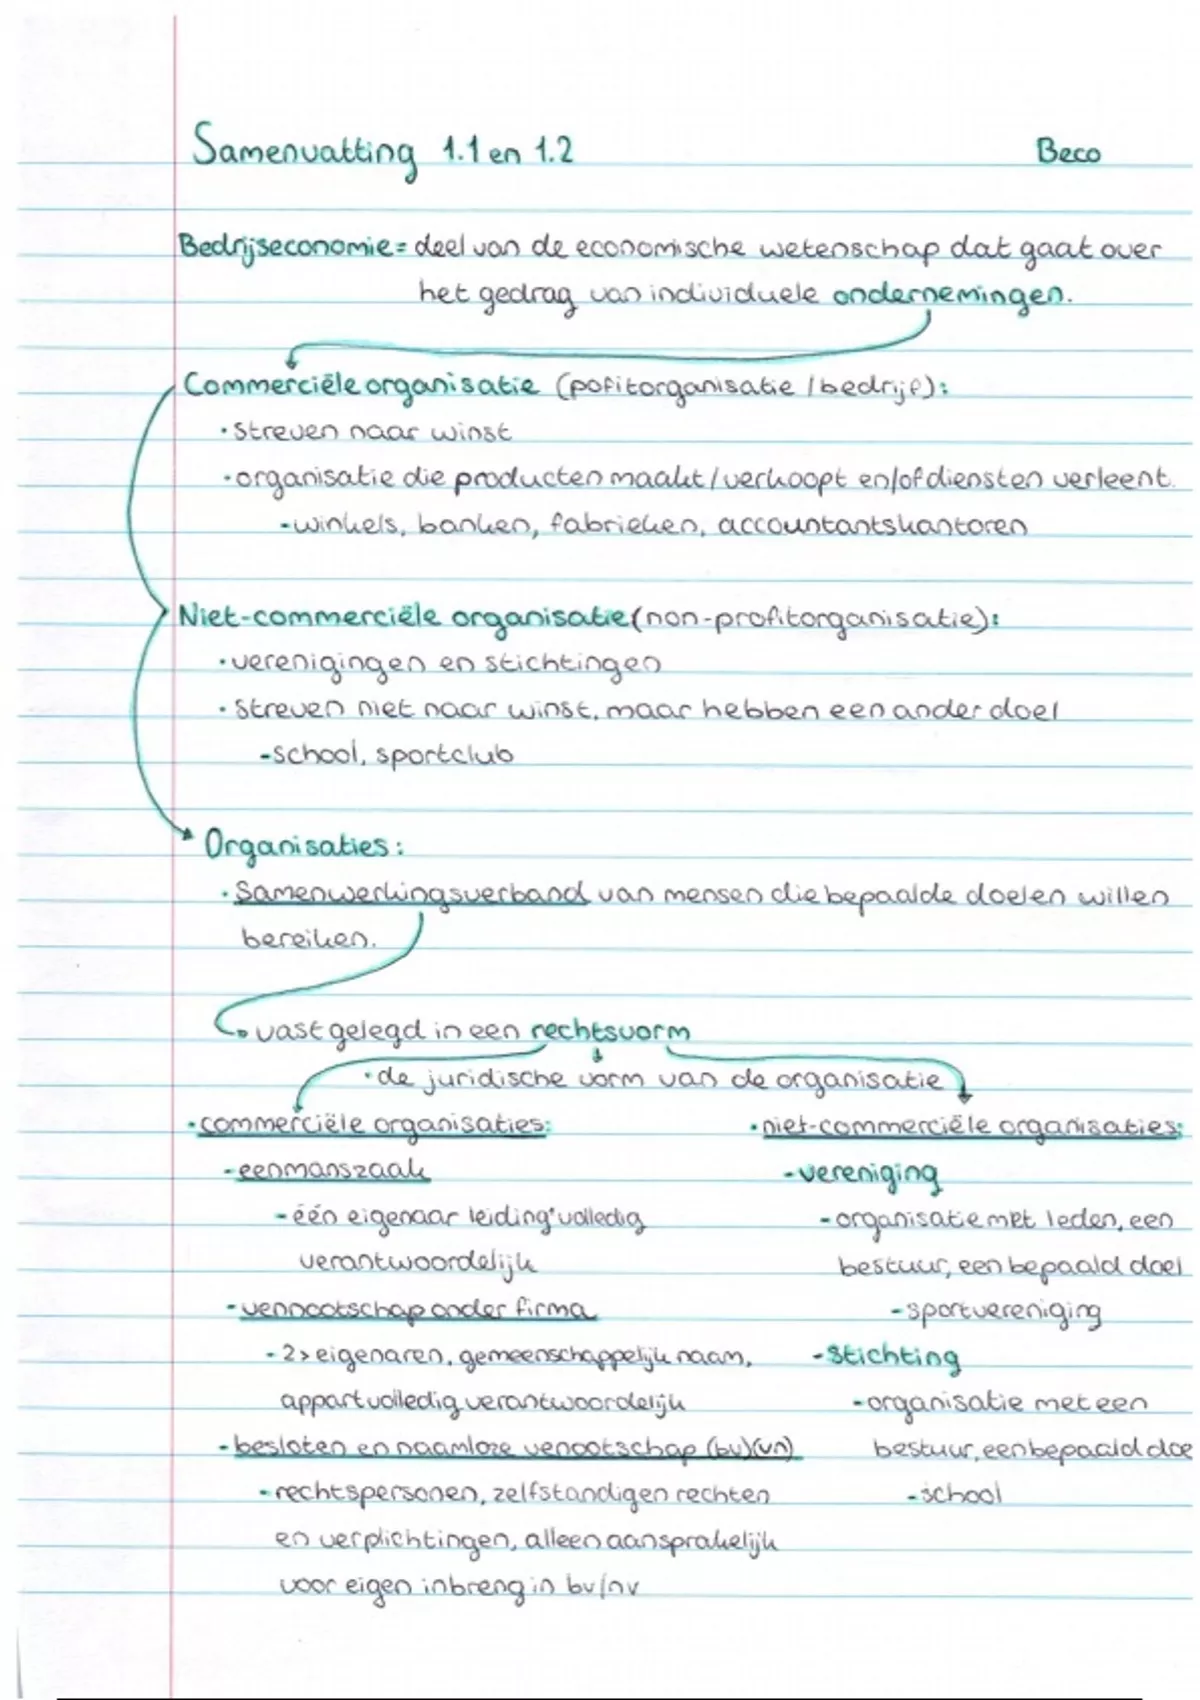 Samenvatting 1.1 en 1.2 Beco
Bedrijseconomie = deel van de economische wetenschap dat gaat over
het gedrag van individuele ondernemingen.
Commerciële organisatie (pofitorganisatie / bedrijf):
• streven naar winst
• organisatie die producten maakt/verkoopt en/of diensten verleent.
- winkels, banken, fabrieken, accountantskantoren
Niet-commerciële organisatie (non-profitorganisatie):
• verenigingen en stichtingen
• streven niet naar winst, maar hebben een ander doel
- school, sportclub
Organisaties:
• Samenwerkingsverband van mensen die bepaalde doelen willen
bereiken.
vastgelegd in een rechtsvorm
• de juridische vorm van de organisatie
• commerciële organisaties:
- eenmanszaak
- één eigenaar leiding volledig
verantwoordelijk
- vennootschap onder firma
- 2> eigenaren, gemeenschappelijk naam,
appart volledig verantwoordelijk
- besloten en naamloze venootschap (bv)(vn)
- rechtspersonen, zelfstandigen rechten
en verplichtingen, alleen aansprakelijk
voor eigen inbreng in bv/nv
• niet-commerciële organisaties:
- vereniging
- organisatie met leden, een
bestuur, een bepaald doel
- sportvereniging
- stichting
- organisatie met een
bestuur, een bepaald doe
- school